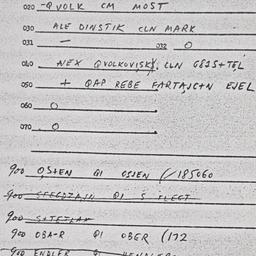 020 -Q VOLK CM MOST
030 ALE DINSTIK CLN MARK
031 - 032 O
040 NEX QVOLKOVISKY, CLN GESS+TEL
050 + QAP REBE FARTAJC+N EJEL
060 O
070 O
900 OS+EN QI OSIEN (/185060
900 QI S FLECT
900
900 OBA-R QI OBER (172
900 ENDLER